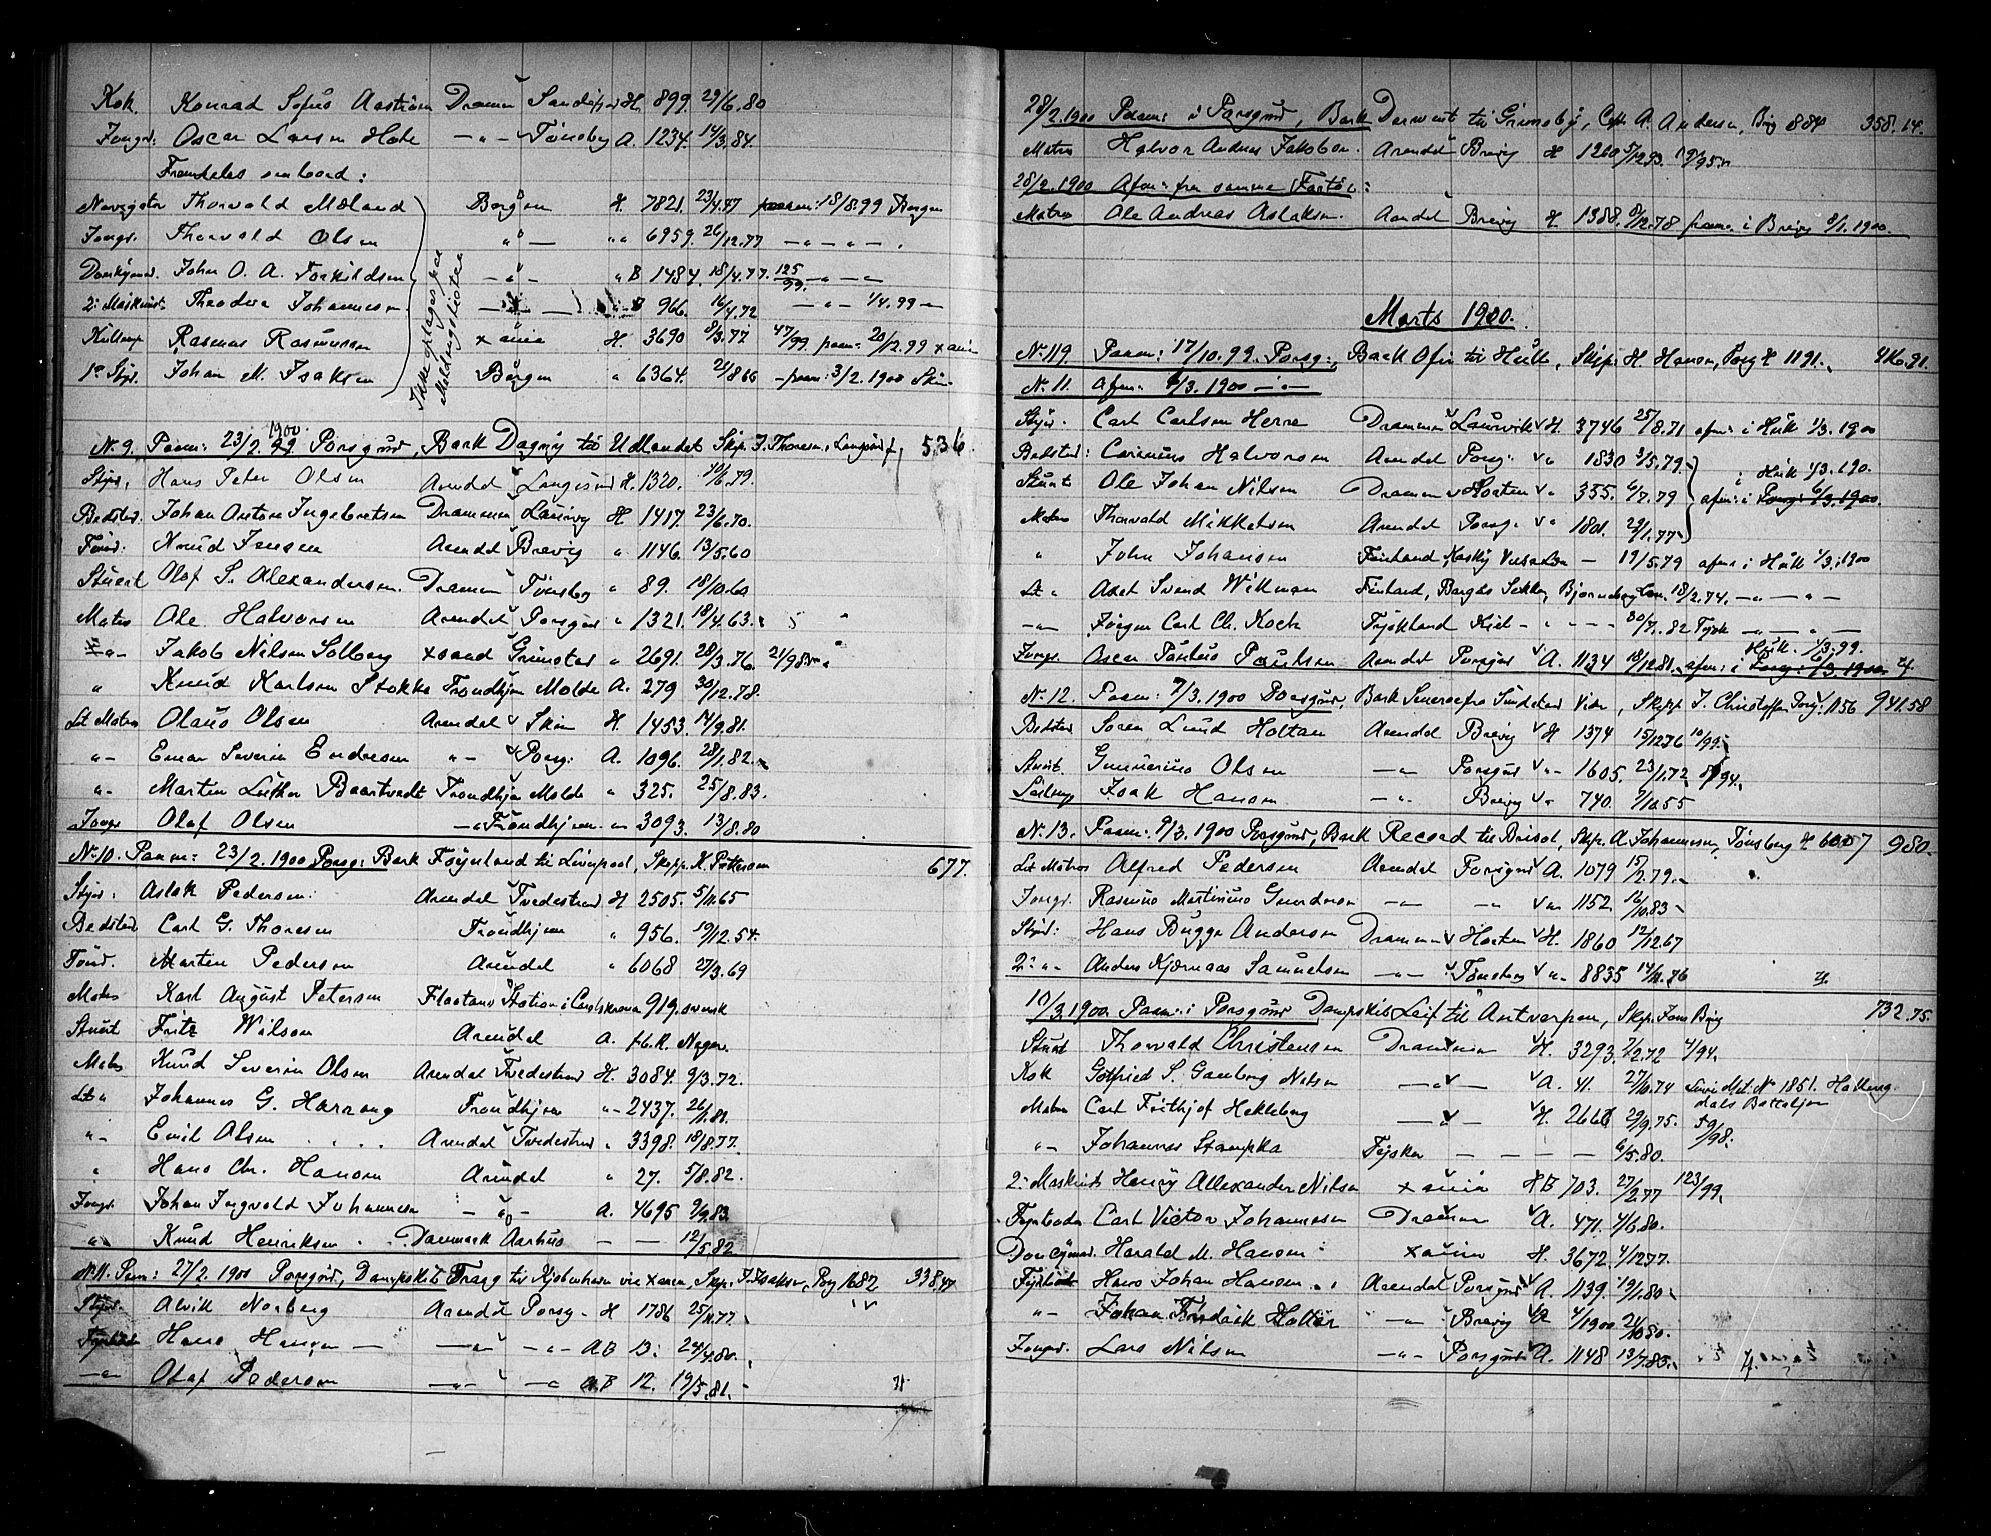 Kok Konrad Sofus Aastrøm Dramm Sandefjord H. 899. 29/6.80
Jongr: Oscar Larsen Hole —„— Tønsberg A. 1234. 14/3.84.
Fremdeles ombord:
Navigatør Thorvald Mæland Bergen H. 7821. 23/4.47 paam: 18/8.99 Bergen
Jongr. Thorvald Olsen „ — „ 6959. 26/12.77 —„—„—
Donkeymd. John O. A. Torkildsen —„— „ B 1484. 18/4.77. 125/99. —„—
2: Maskinist Theodor Johannesen — „ B 966. 16/4.72 —„— 1/4.99 —
Kulltrmp Rasmus Rasmussen Xania H. 3690 8/3.77 47/99 paam: 20/12.99 Xania
1e Styr. Johan M. Isaksen Bergen „ 6364. 21/8 66 — paam: 3/2. 1900 Skien
Ikke optages paa Maanedslisten
N. 9. Paam: 23/2. 1900 Porsgrund, Bark Dagny til Udlandet Skip. J. Thorsen, Langesund 536.
Styrd. Hans Peter Olsen Arendal Langesund H. 1320. 10/6.79.
Bedstmd. Johan Anton Ingebretsen Drammen Laurvig H 1417. 23/6.70.
Tømd: Knud Jensen Arendal Brevig „ 1146. 13/5.60
Stuert Olaf S. Alexandersen. Drammen Tønsberg „ 89. 18/10.60
Matros Ole Halvorsen Arendal Porsgrd „ 1321. 18/4.63.
„— Jakob Nilsen Solberg Xsand Grimstad „ 2691. 28/3.76. 21/98
„ Knud Karlsen Stokke Trondhjem Molde A. 279 30/12.78.
Let Matros Olaus Olsen Arendal Skien H. 1453. 14/9.81.
„— Einar Severin Endresen „— Porsg: A. 1096. 28/1.82.
„— Martin Luther Baartvedt Trondhjem Molde „ 325. 25/8.83.
Jongr Olaf Olsen —„ Trondhjem — 3093. 13/8.80
N. 10. Paam: 23/2. 1900 Porsg: Bark Føynland til Liverpool, Skipp. K. Pettersen 677.
Styrd: Aslak Pedersen. Arendal Tvedestrand H 2505. 5/11.65
Bedstmd Carl G. Thoresen Trondhjem „ 956. 19/12.54.
Tømd. Martin Pedersen Arendal „ 6068 27/3.69
Matros Karl August Petersen Flaatans Station i Carlskrona 919. svensk
Stuert Fritz Wilson Arendal A. f.b.R. Neger.
Matros Knud Severin Olsen Arendal Tvedestrand H. 3084. 9/3.72.
Let „ Johannes G. Harrang Trondhjem „— 2437. 26/1.81.
„— Emil Olsen .... Arendal Tvedestrand „ 3398. 18/8.77.
„ Hans Chr. Hansen Arendal „ 27. 5/8.82.
Jongr. Johan Ingvald Johannesen —„— A. 4695 9/9.83.
„ Knud Henriksen .. Danmark Aarhus — — 12/5.82
N. 11. Paam: 27/2. 1900 Porsgrd, Dampskib Trang til Kjøbenhavn via Xania, Skip. J. Isaksen, Porsg 682 338.47
Styrd. Alvik Norberg Arendal Porsg. — H 1786 25/11.77.
Fyrbøder Hans Hansen — —„— „— AB 13. 24/4.80.
—„— Olaf Pedersen —„— —„ AB 12. 19/5.81.
28/2. 1900 Paam: i Porsgrund, Bark Derwent til Grimsby, Capt. A. Andersen, Brvg 884 358.14.
Matros Halvor Andreas Jakobsen. Arendal Brevig H 1260 5/12.93.
28/2. 1900 Afm: fra samme Fartøi:
Matros Ole Andreas Aslaksen. Arendal Brevig H 1388. 8/12.78 paam. i Brevig 9/1. 1900.
Marts 1900.
N. 119 Paam: 17/10.99. Porsg., Bark Ofir til Hull, Skip. H. Hansen, Porsg H 1191. 416.91.
N. 11. Afm: 6/3. 1900 —„—
Styrd. Carl Carlsen Herre Drammen Laurvik H. 3746 25/8.71 afm: i Hull 1/3. 1900
Bedstmd: Carinius Halvorsen Arendal Porsg: „ 1830 3/5.79. i Hull 1/3.190.
Stuert Ole Johan Nilsen Drammen Horten „ 355. 6/7.79 afm: i Porsg: 6/3. 1900.
Matros Thorvald Mikkelsen Arendal Porsg. „ 1801. 29/1.77
„ John Johansen Finland, Kasky — 19/5.79 afm: i Hull 1/3.1900
Let „ Axel Svend Willman Finland, Björneborg 18/2.74. —„—„—
—„— Jørgen Carl Ch. Koch Tyskland Kiel — — — 30/7.82 Tysk —„—„—
Jongr. Oscar Paulius Paulsen Arendal Porsgrd A. 1134 18/12.81. afm: i Porsg: 6/3. 1900 Hull. 1/3.99.
N. 12. Paam: 7/3. 1900 Porsgrund, Bark Skipp. J. Christoffersen Porsg. 1156 941.58
Bedstmd Søren Lund Holtan Arendal Brevig H 1374 15/12 76 10/99
Stuert. Gunnerius Olsen —„— Porsgrd „— 1605. 23/1.72 8/94.
Seilmgr Isak Hansen —„— Brevig „ 740. 7/11.55
N. 13. Paam: 9/3. 1900 Porsgrund, Bark Record til Bristol, Skip. A. Johannesen, Tønsberg H 607 980.
Let Matros Alfred Pedersen Arendal Porsgrd A. 1079 15/2.79.
Jongr. Rasmus Martinius Gundersen —„— „— „— 1152. 16/10.83
Styrd: Hans Bugge Andersen Drammen Horten H. 1860 12/12.67
2: „— Anders Kjærnaas Samuelsen —„— Tønsberg „ 8835 14/11.76
10/3. 1900. Paam: i Porsgrund Dampskib Leif til Antverpen, Skip. Brvg 732.75.
Stuert Thorvald Christensen Drammen H. 3293. 7/2.72 4/94.
Kok Gotfried S. Gamborg Nilsen —„— A. 41. 27/10.74 Linri Mat. No 1851. Hallingdals Bataljon
Matros Carl Frithjof Hekleberg —„— H. 2666 29/9.75. 59/98.
„— Johannes Stampka Tysker — — — 6/5.80.
2: Maskinist Henry Allexander Nilsen Xania HB 703. 27/2.77 123/99.
Fyrbøder Carl Victor Johannesen Drammen A. 471. 4/6.80.
Donkeymd. Harald M. Hansen Xania H. 3672. 4/12.77.
Fyrbød Hans Johan Hansen Arendal Porsgrd A. 1139. 19/1.80.
„— Johan Fredrik Holter —„— Brevig A 4/1900 21/10 80.
Jongr. Lars Nilsen —„— Porsgrd A. 1148 13/7.83.